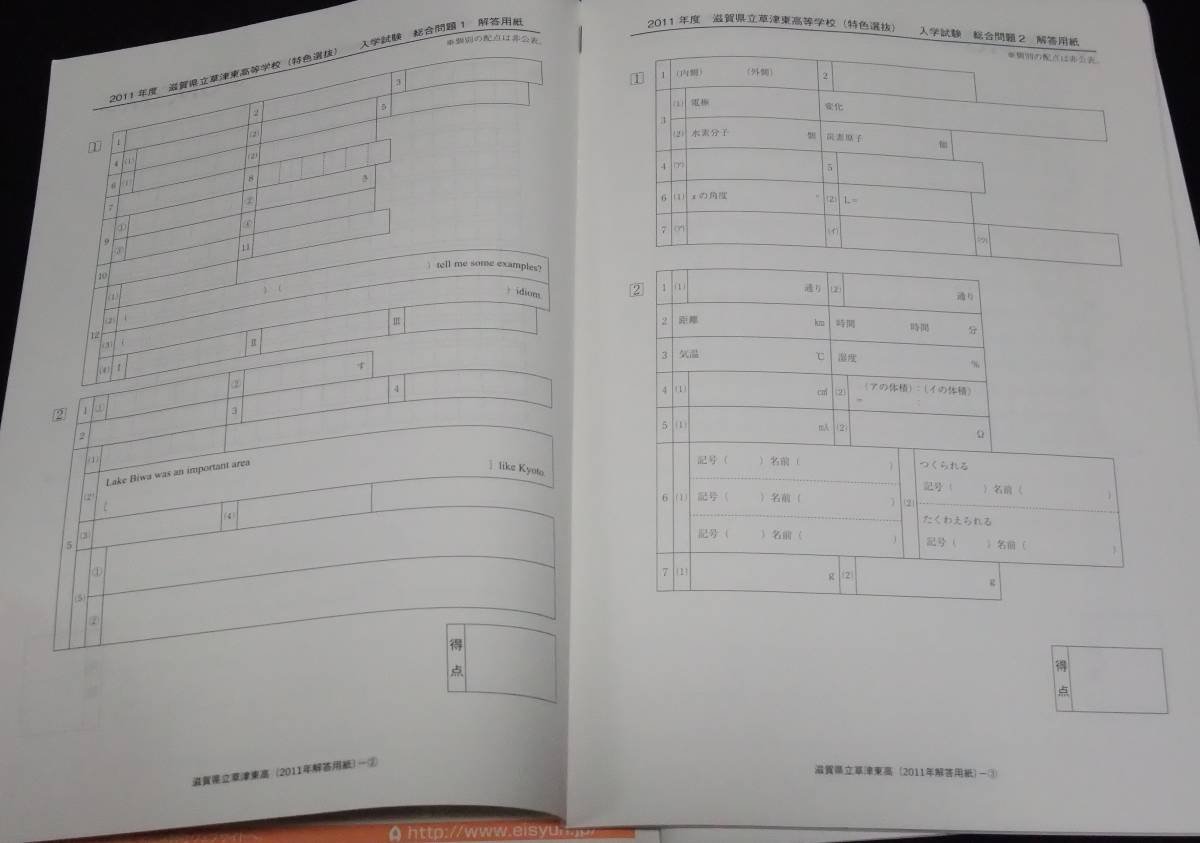 2011年度 滋賀県立草津東高等学校（特色選抜） 入学試験 総合問題1 解答用紙
※個別の配点は非公表。
1
1 2 3
4 (1) (2) 5
6 (1) (2)
7 8 さ
9 ① ②
③ ④
10 11
12 (1) ） tell me some examples?
(2) （ ）（ ？ idiom.
(3) （
(4) Ⅰ Ⅱ Ⅲ
2
1 ① ② す
2 3 4
5 (1)
(2) Lake Biwa was an important area
［ ］ like Kyoto.
(3) (4)
(5) ①
②
得点
滋賀県立草津東高〔2011年解答用紙〕ー②
2011年度 滋賀県立草津東高等学校（特色選抜） 入学試験 総合問題2 解答用紙
※個別の配点は非公表。
1
1 （内側） （外側） 2
3 (1) 電極 変化
(2) 水素分子 個 炭素原子 個
4 (ア) 5
6 (1) xの角度 ° (2) L＝
7 (ア) (イ) (ウ)
2
1 (1) 通り (2) 通り
2 距離 km 時間 時間 分
3 気温 ℃ 湿度 ％
4 (1) c㎥ (2) （アの体積）：（イの体積）
＝ ：
5 (1) mA (2) Ω
6 (1) 記号（ ）名前（ ）
記号（ ）名前（ ）
記号（ ）名前（ ）
(2) つくられる
記号（ ）名前（ ）
たくわえられる
記号（ ）名前（ ）
7 (1) g (2) g
得点
滋賀県立草津東高〔2011年解答用紙〕ー③
http://www.eisyun.jp/